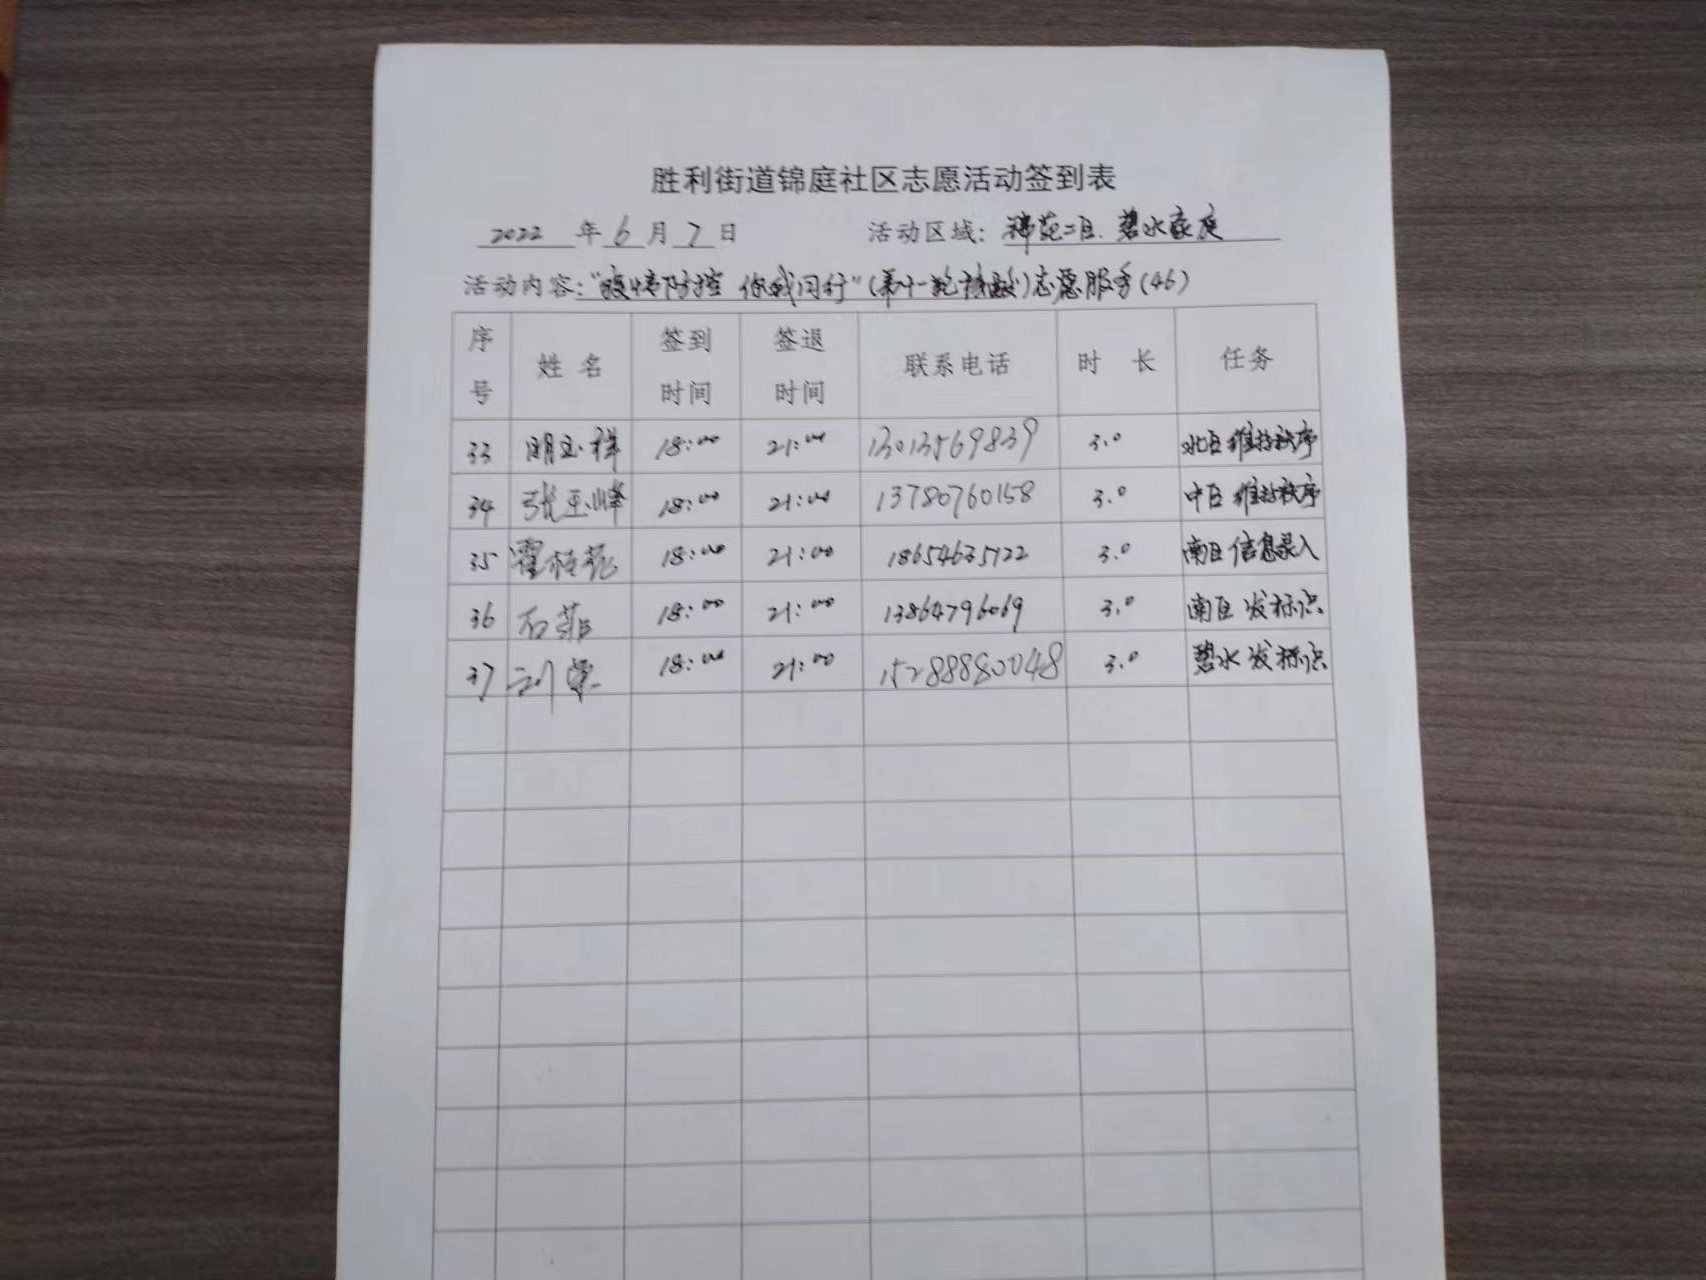 胜利街道锦庭社区志愿活动签到表
2022 年 6 月 7 日 活动区域: 锦苑二区、碧水豪庭
活动内容:“疫情防控 你我同行”(第十一轮核酸)志愿服务(46)
序号 姓名 签到时间 签退时间 联系电话 时长 任务
33 明玉祥 18:00 21:00 13013569839 3.0 北区维持秩序
34 张玉峰 18:00 21:00 13780760158 3.0 中区维持秩序
35 霍桂花 18:00 21:00 18654635722 3.0 南区信息录入
36 石菲 18:00 21:00 13864796069 3.0 南区发标识
37 刘荣 18:00 21:00 15288880048 3.0 碧水发标识